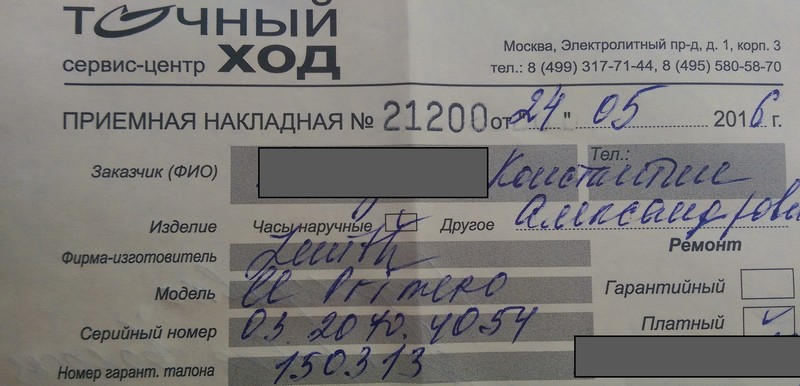 ТОЧНЫЙ
сервис-центр ХОД
Москва, Электролитный пр-д, д. 1, корп. 3
тел.: 8 (499) 317-71-44, 8 (495) 580-58-70
ПРИЕМНАЯ НАКЛАДНАЯ № 21200 от "24" 05 2016 г.
Заказчик (ФИО) Константин Тел.:
Александрови
Изделие Часы наручные Другое
Фирма-изготовитель Zenith
Ремонт
Модель El Primero
Гарантийный
Серийный номер 03.2040.4054
Платный
Номер гарант. талона 150313